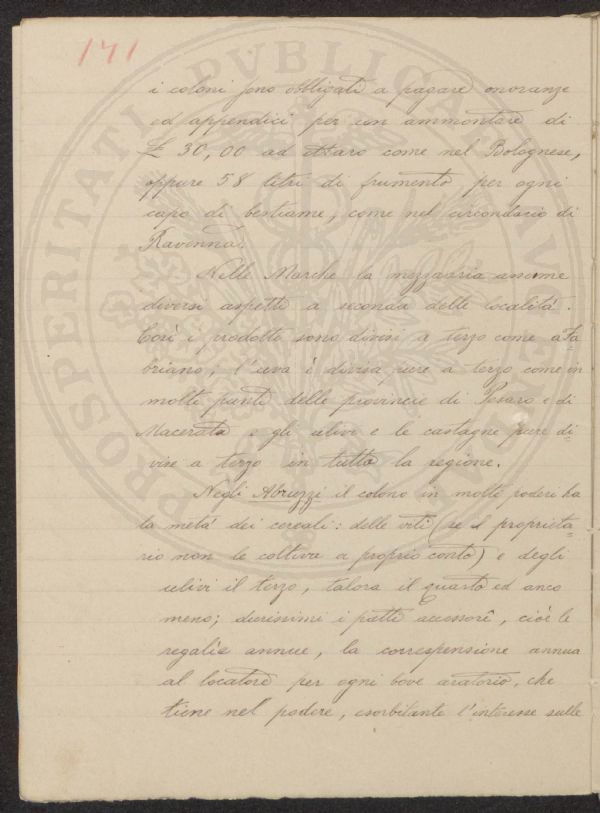 171
i coloni sono obbligati a pagare onoranze
ed appendici per un ammontare di
£ 30,00 ad ettaro come nel Bolognese,
oppure 58 litri di frumento per ogni
capo di bestiame, come nel circondario di
Ravenna.
Nelle Marche la mezzadria assume
diversi aspetti a seconda delle località.
Così i prodotti sono divisi a terzo come a Fa=
briano; l'uva è divisa pure a terzo come in
molti punti delle provincie di Pesaro e di
Macerata e gli ulivi e le castagne pure di=
vise a terzo in tutta la regione.
Negli Abruzzi il colono in molti poderi ha
la metà dei cereali: delle viti (se il proprieta=
rio non le coltiva a proprio conto) e degli
ulivi il terzo, talora il quarto ed anco
meno; durissimi i patti accessorî, cioè le
regalìe annue, la corresponsione annua
al locatore per ogni bove aratorio, che
tiene nel podere, esorbitante l'interesse sulle
PROSPERITATI PVBLICAE AVGENDAE